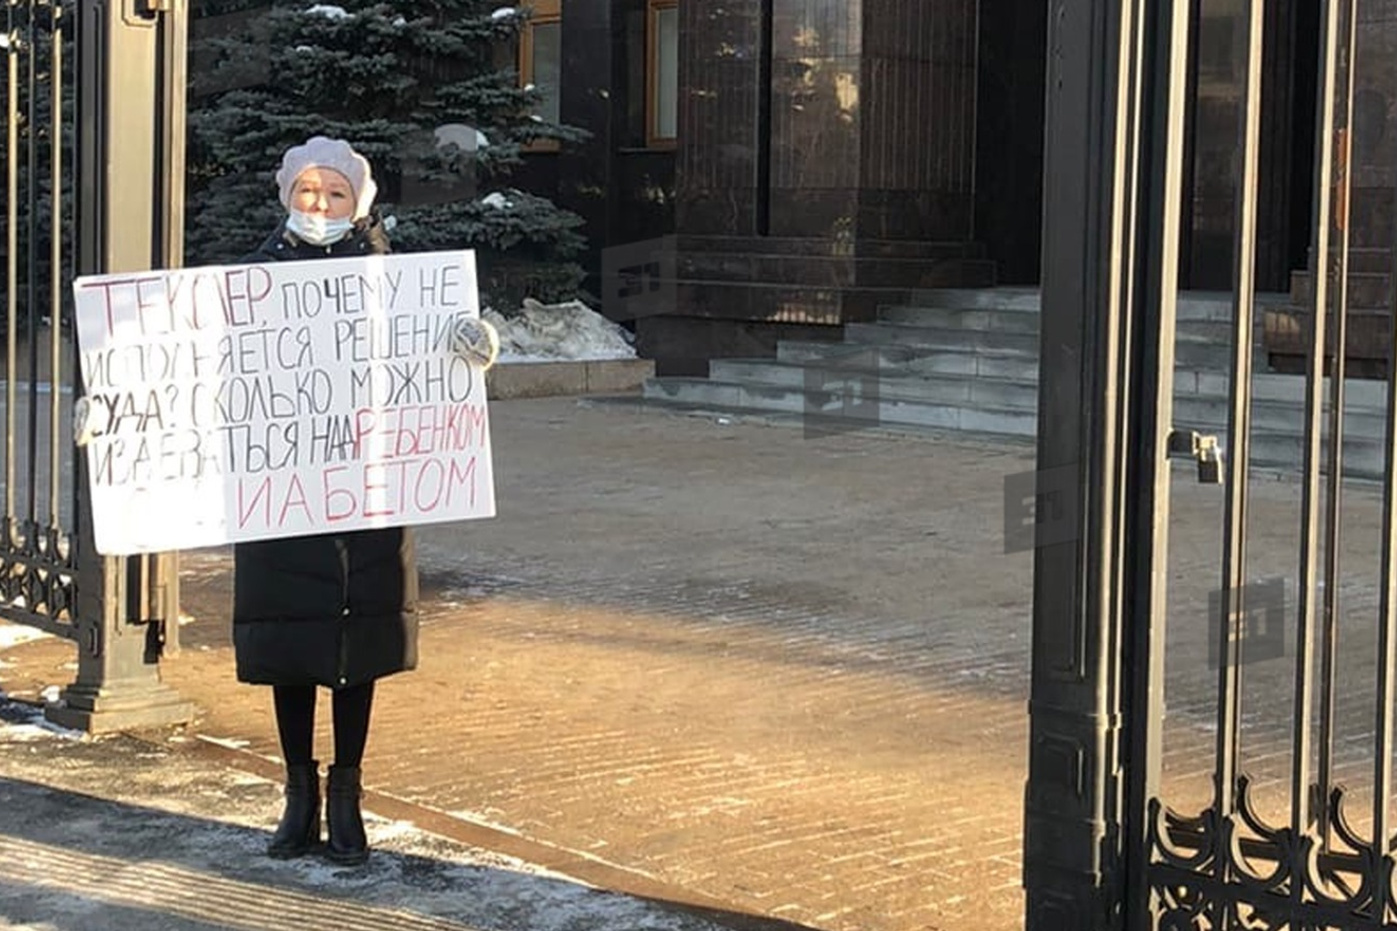 ТЕКСЛЕР, ПОЧЕМУ НЕ
ИСПОЛНЯЕТСЯ РЕШЕНИЕ
СУДА? СКОЛЬКО МОЖНО
ИЗДЕВАТЬСЯ НАД РЕБЕНКОМ
ДИАБЕТОМ